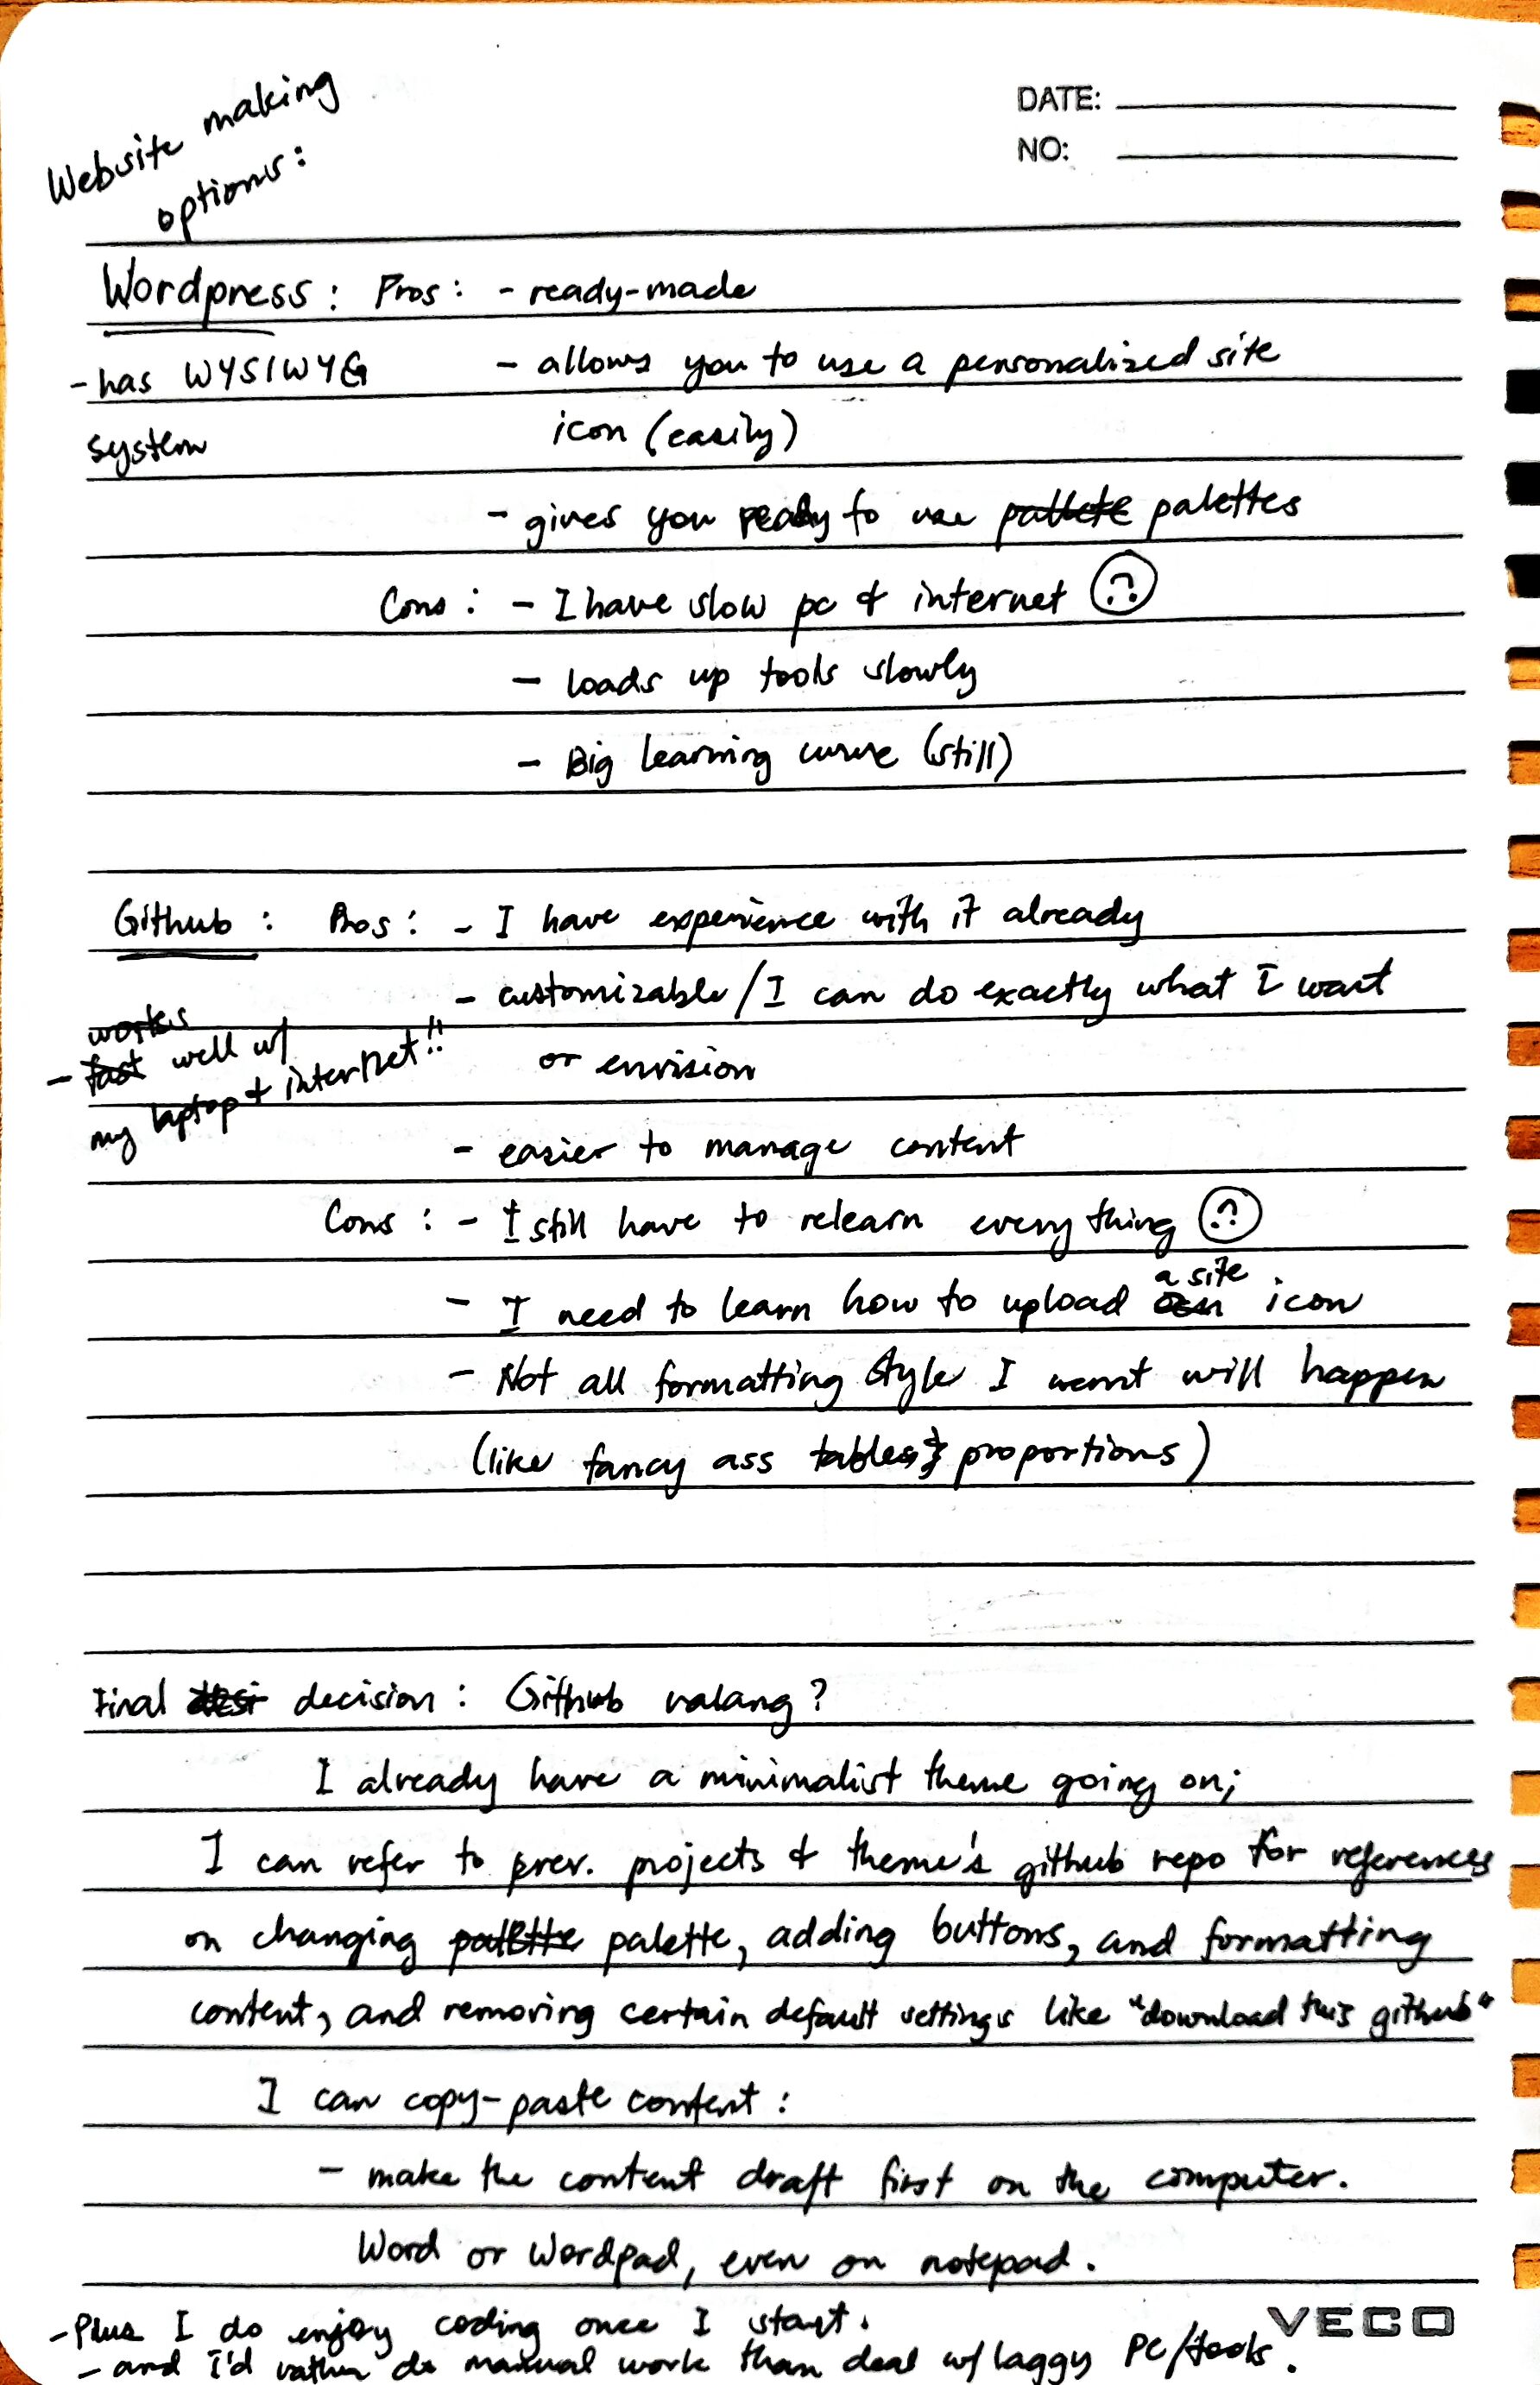 Website making
options:
DATE:
NO:
Wordpress: Pros: - ready-made
- has WYSIWYG - allows you to use a personalized site
system icon (easily)
- gives you ready to use pallete palettes
Cons: - I have slow pc & internet :(
- loads up tools slowly
- Big learning curve (still)
Github: Pros: - I have experience with it already
- customizable/I can do exactly what I want
or envision
works
- fast well w/
my laptop & internet!!
- easier to manage content
Cons: - I still have to relearn everything :(
a site
- I need to learn how to upload icon
- Not all formatting style I want will happen
(like fancy ass tables & proportions)
Final desi decision: Github nalang?
I already have a minimalist theme going on;
I can refer to prev. projects & theme's github repo for references
on changing palette, adding buttons, and formatting
content, and removing certain default settings like "download this github"
I can copy-paste content:
- make the content draft first on the computer.
Word or Wordpad, even on notepad.
- Plus I do enjoy coding once I start.
- and I'd rather do manual work than deal w/ laggy PC/tools.
VECO